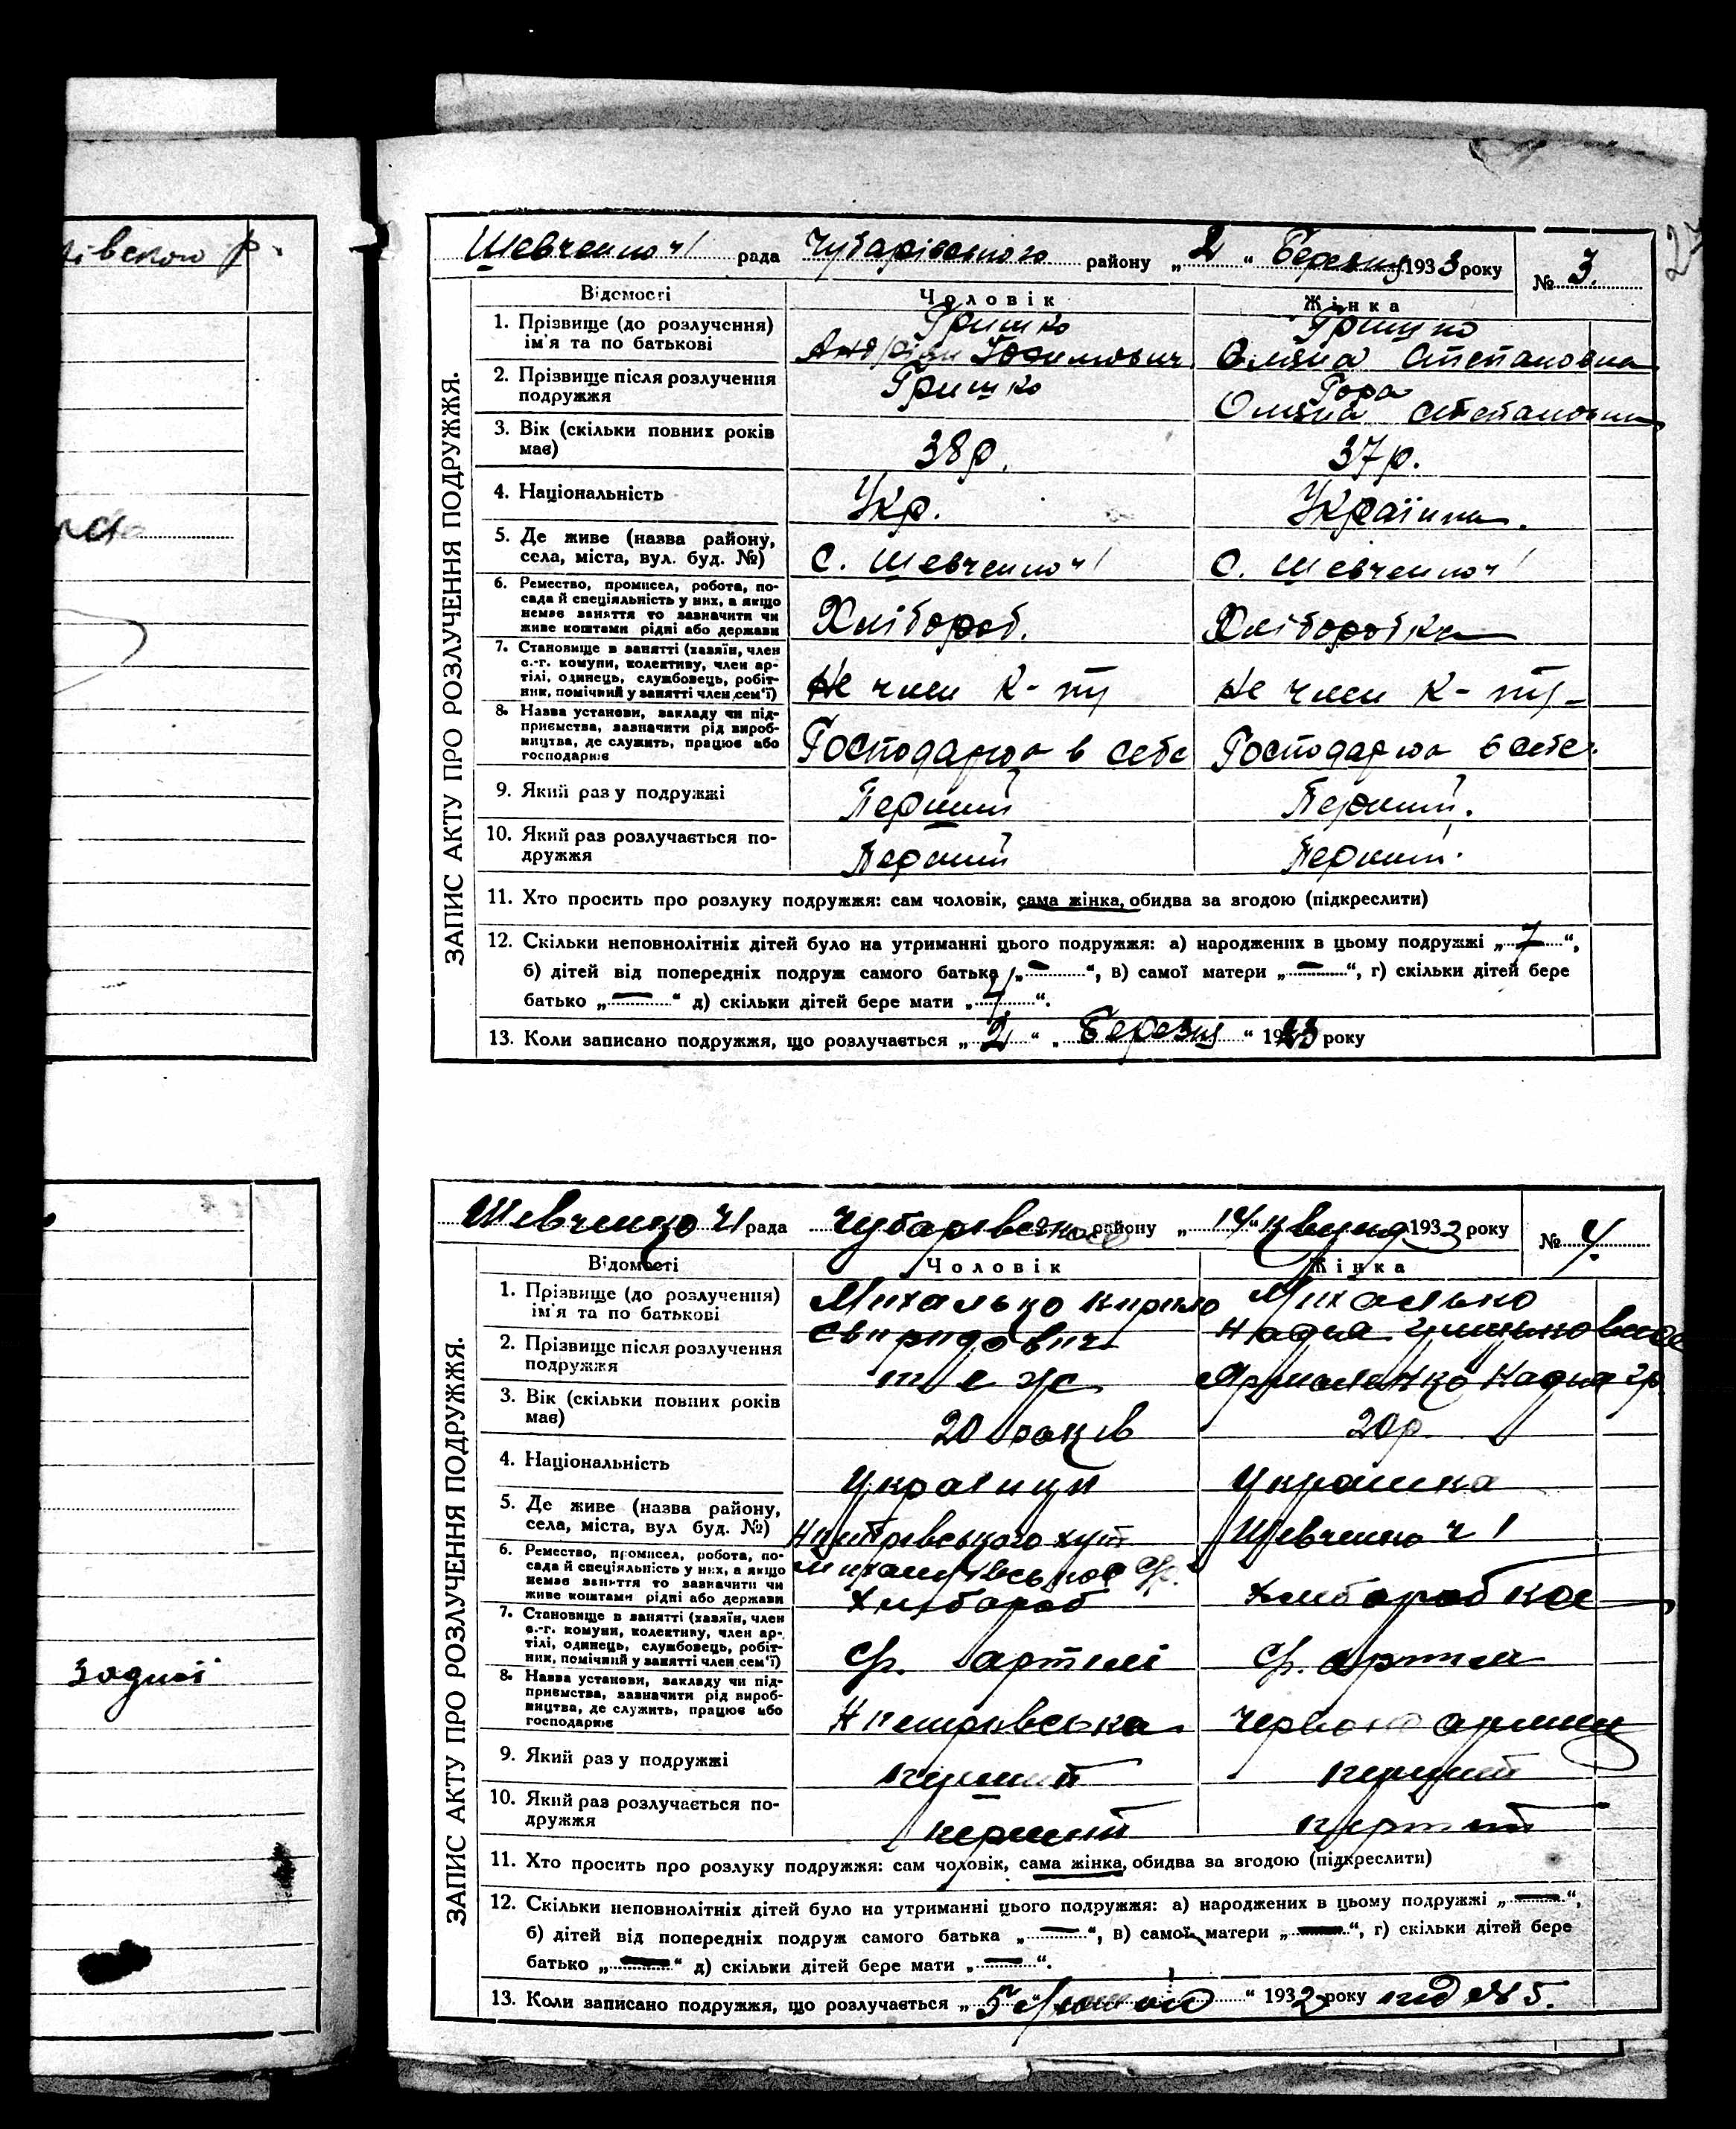 івского р.
зодиої
27
Шевченко ч1 рада Чубарівського району „2“ Березня 1933 року № 3.
ЗАПИС АКТУ ПРО РОЗЛУЧЕННЯ ПОДРУЖЖЯ.
Відомості Чоловік Жінка
1. Прізвище (до розлучення) Гришко Гришко
ім'я та по батькові Юхимович Оляна Степановна
2. Прізвище після розлучення Гришко Гора
подружжя Оляна Степановна
3. Вік (скільки повних років 38р. 37р.
має)
4. Національність Укр. Українка.
5. Де живе (назва району,
села, міста, вул. буд. №) С. Шевченко ч1 С. Шевченко ч1
6. Ремество, промисел, робота, по-
сада й спеціяльність у них, а якщо
немає заняття то зазначити чи Хлібороб. Хліборобка
живе коштами рідні або держави
7. Становище в занятті (хазяїн, член
с.-г. комуни, колективу, член ар-
тілі, одинець, службовець, робіт- Не член к-ту Не член к-ту
ник, помічний у занятті член сем'ї)
8. Назва установи, закладу чи під-
приємства, зазначити рід вироб-
ництва, де служить, працює або Господарюа в себе Господарюа в себе.
господарює
9. Який раз у подружжі Перший Перший.
10. Який раз розлучається по-
дружжя Перший Перший.
11. Хто просить про розлуку подружжя: сам чоловік, сама жінка, обидва за згодою (підкреслити)
12. Скільки неповнолітніх дітей було на утриманні цього подружжя: а) народжених в цьому подружжі „7“,
б) дітей від попередніх подруж самого батька „—“, в) самої матери „—“, г) скільки дітей бере
батько „—“ д) скільки дітей бере мати „7“.
13. Коли записано подружжя, що розлучається „2“ „Березня“ 1923 року
Шевченко ч1 рада Чубарівського району „14“ квітня 1933 року № 4.
ЗАПИС АКТУ ПРО РОЗЛУЧЕННЯ ПОДРУЖЖЯ.
Відомості Чоловік Жінка
1. Прізвище (до розлучення) Михалько Кирило Михалько
ім'я та по батькові Свиридович Надія
2. Прізвище після розлучення
подружжя теж Ярмоленко Надія Гр
3. Вік (скільки повних років 20 років 20р.
має)
4. Національність Українци Українка
5. Де живе (назва району,
села, міста, вул буд. №) хут Шевченко ч 1
6. Ремество, промисел, робота, по-
сада й спеціяльність у них, а якщо
немає заняття то зазначити чи
живе коштами рідні або держави Хлібороб Хліборобка
7. Становище в занятті (хазяїн, член
с.-г. комуни, колективу, член ар-
тілі, одинець, службовець, робіт- артілі артілі
ник, помічний у занятті член сем'ї)
8. Назва установи, закладу чи під-
приємства, зазначити рід вироб-
ництва, де служить, працює або
господарює
9. Який раз у подружжі перший перший
10. Який раз розлучається по-
дружжя перший перший
11. Хто просить про розлуку подружжя: сам чоловік, сама жінка, обидва за згодою (підкреслити)
12. Скільки неповнолітніх дітей було на утриманні цього подружжя: а) народжених в цьому подружжі „—“,
б) дітей від попередніх подруж самого батька „—“, в) самої матери „—“, г) скільки дітей бере
батько „—“ д) скільки дітей бере мати „—“.
13. Коли записано подружжя, що розлучається „5 “ 1932 року під № 5.